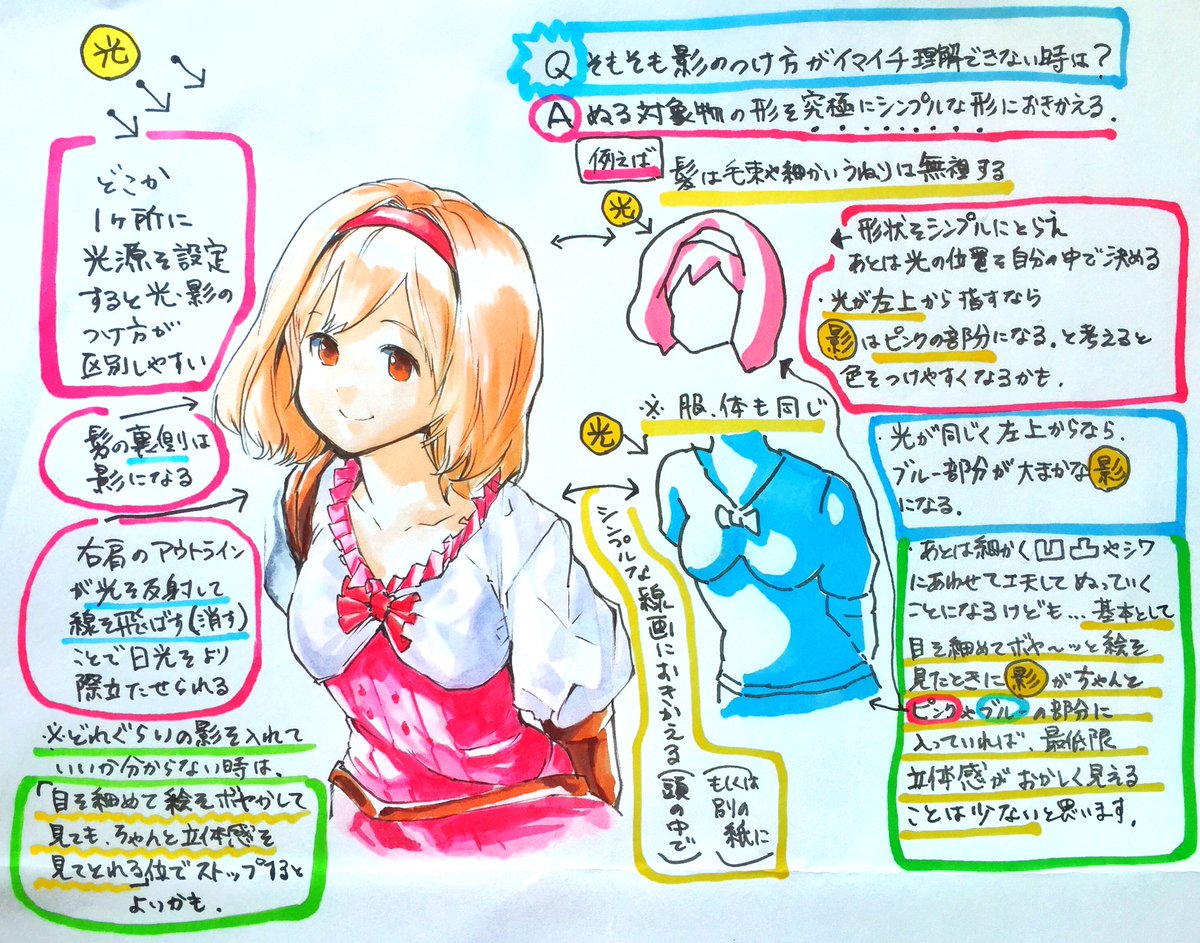 光
Q そもそも影のつけ方がイマイチ理解できない時は?
A ぬる対象物の形を究極にシンプルな形におきかえる.
例えば 髪は毛束や細かいうねりは無視する
どこか
1ヶ所に
光源を設定
すると光、影の
つけ方が
区別しやすい
髪の裏側は
影になる
右肩のアウトライン
が光を反射して
線を飛ばす(消す)
ことで日光をより
際立たせられる
※どれぐらいの影を入れて
いいか分からない時は、
「目を細めて絵をボヤかして
見ても、ちゃんと立体感を
見てとれる位でストップすると
よいかも.
光
形状をシンプルにとらえ
あとは光の位置を自分の中で決める
・光が左上から指すなら
影はピンクの部分になる。と考えると
色をつけやすくなるかも.
※服、体も同じ
光
・光が同じく左上からなら、
ブルー部分が大まかな影
になる.
シンプルな線画におきかえる
(頭の中で
もしくは
別の
紙に)
・あとは細かく凹凸やシワ
にあわせて工夫してぬっていく
ことになるけども…基本として
目を細めてボヤ〜ッと絵を
見たときに影がちゃんと
ピンクやブルーの部分に
入っていれば、最低限
立体感がおかしく見える
ことは少ないと思います.